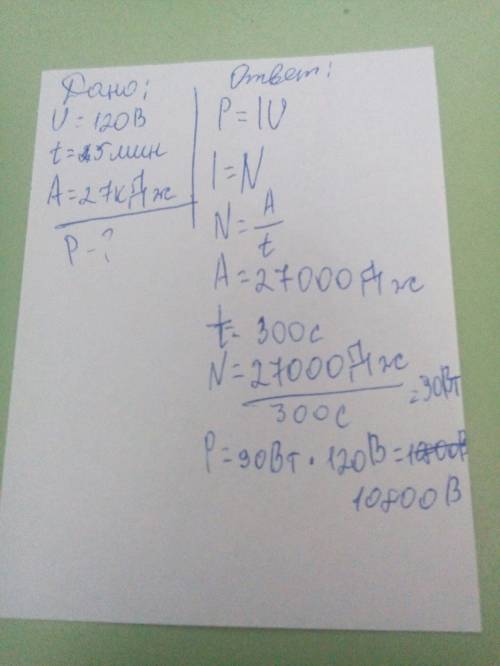 Дано:
U = 120В
t = 5 мин
A = 27кДж
P - ?
Ответ:
P = IU
I = N
N = A/t
A = 27000 Дж
t = 300с
N = 27000 Дж / 300с = 30Вт
P = 90Вт · 120В =
10800В